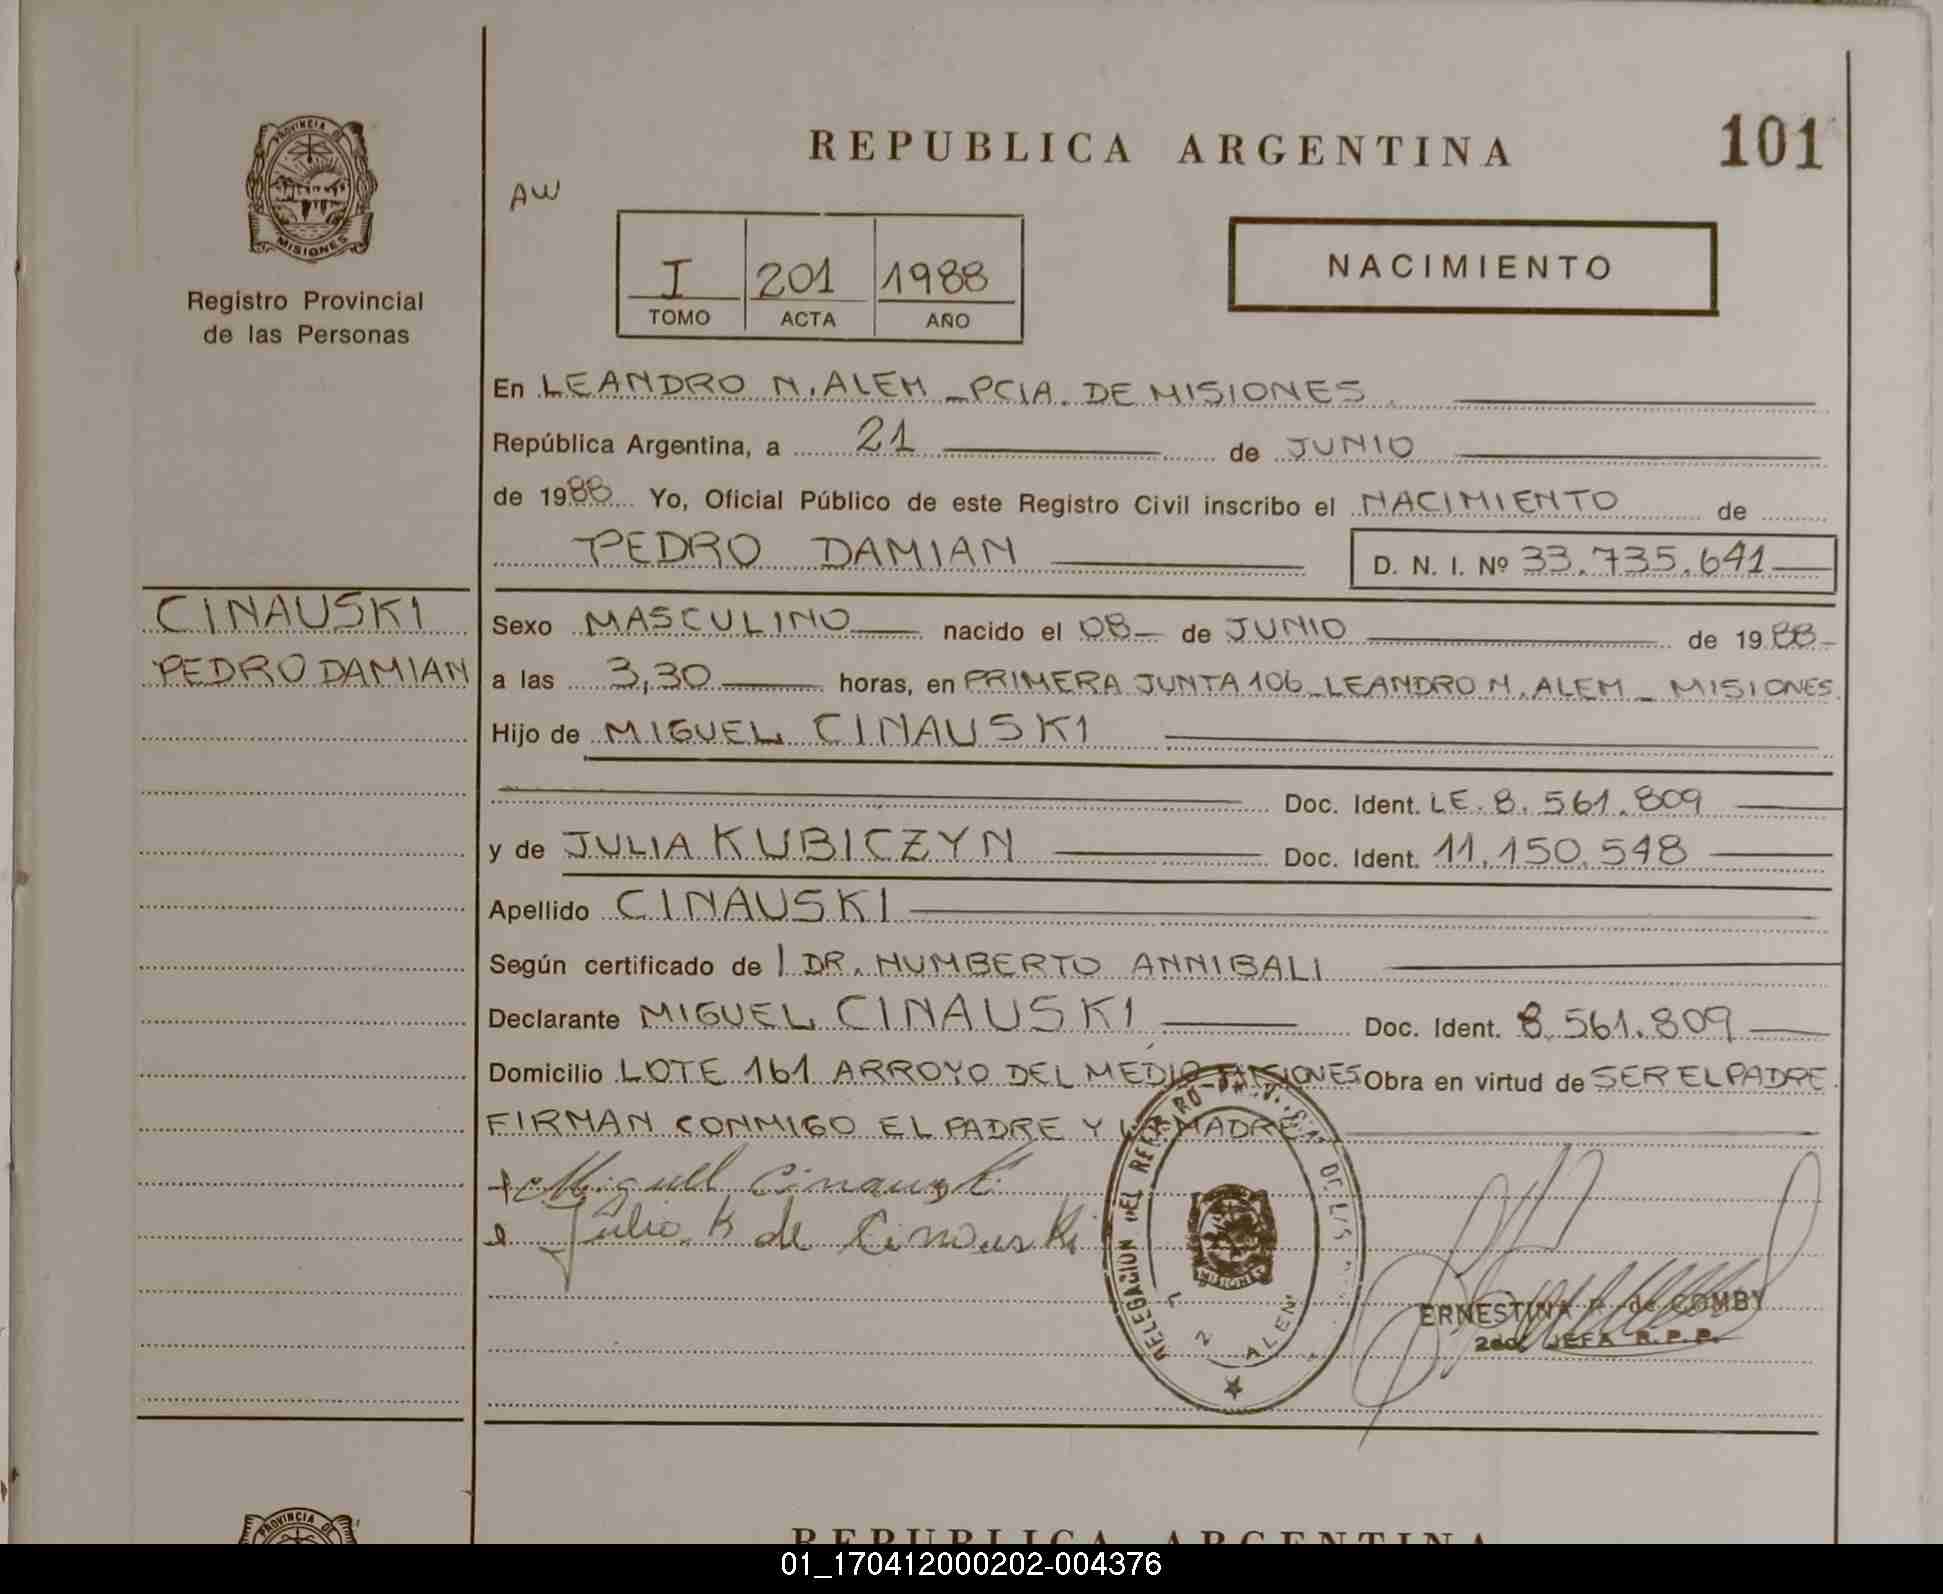 REPUBLICA ARGENTINA
101
PROVINCIA DE
MISIONES
Registro Provincial
de las Personas
AW
I 201 1988
TOMO ACTA AÑO
NACIMIENTO
En LEANDRO N. ALEM - PCIA. DE MISIONES
República Argentina, a 21 de JUNIO
de 1988 Yo, Oficial Público de este Registro Civil inscribo el NACIMIENTO de
PEDRO DAMIAN D. N. I. Nº 33.735.641
CINAUSKI
PEDRO DAMIAN
Sexo MASCULINO nacido el 08 de JUNIO de 1988
a las 3,30 horas, en PRIMERA JUNTA 106 - LEANDRO N. ALEM - MISIONES
Hijo de MIGUEL CINAUSKI
Doc. Ident. LE. 8.561.809
y de JULIA KUBICZYN Doc. Ident. 11.150.548
Apellido CINAUSKI
Según certificado de DR. HUMBERTO ANNIBALI
Declarante MIGUEL CINAUSKI Doc. Ident. 8.561.809
Domicilio LOTE 161 ARROYO DEL MEDIO MISIONES Obra en virtud de SER EL PADRE
FIRMAN CONMIGO EL PADRE Y LA MADRE
Miguel Cinauski
Julia K de Cinauski
DELEGACION DEL REGISTRO DE LAS
MISIONES
ALEM
ERNESTINA P. de COMBY
2da. JEFA R.P.P.
PROVINCIA DE
REPUBLICA ARGENTINA
01_170412000202-004376